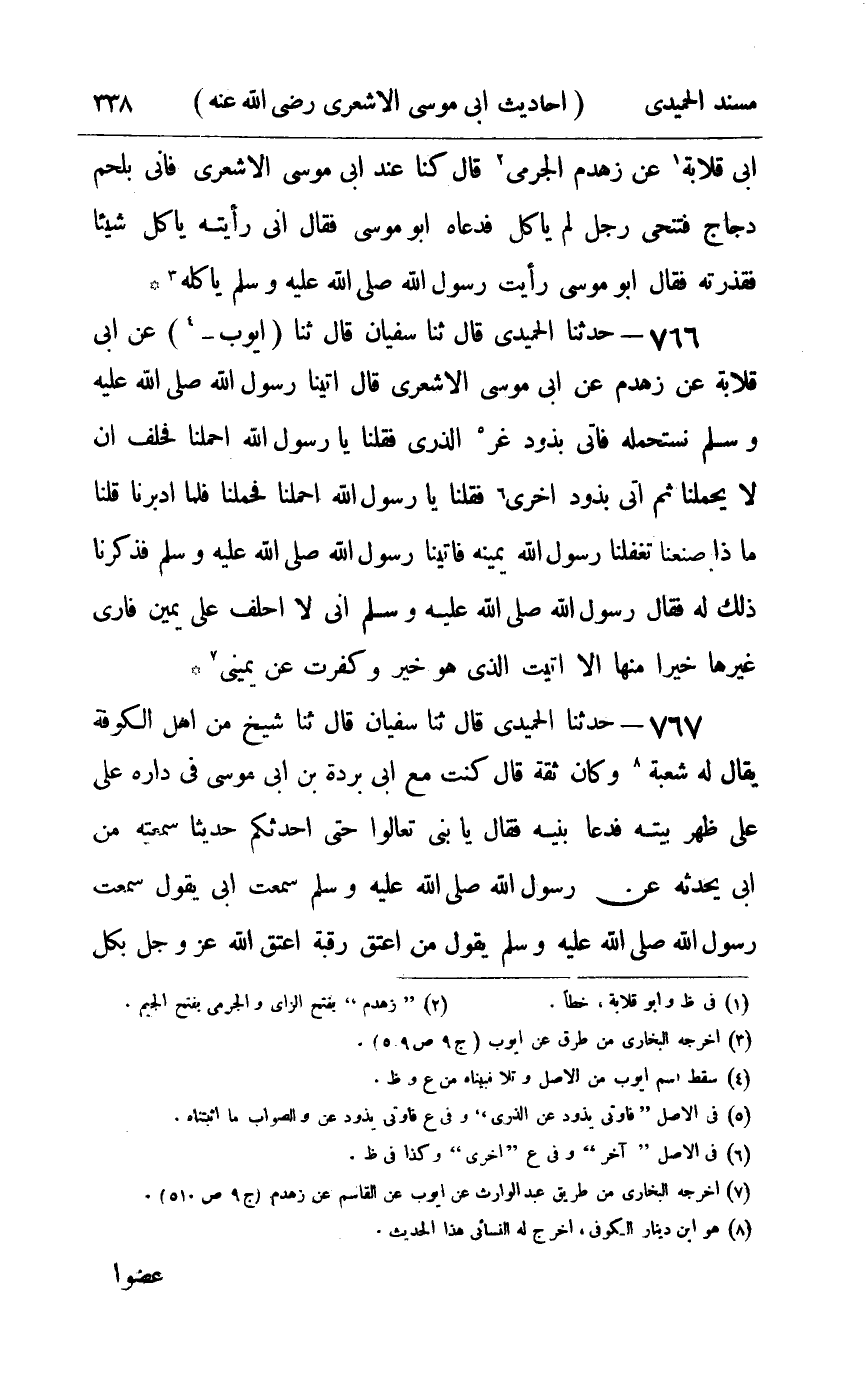 مسند الحميدى ( احاديث ابى موسى الاشعرى رضى الله عنه ) ٣٣٨
ابى قلابة١ عن زهدم الجرمى٢ قال كنا عند ابى موسى الاشعرى فاتى بلحم
دجاج فتنحى رجل لم ياكل فدعاه ابو موسى فقال انى رأيته ياكل شيئا
فقذرته فقال ابو موسى رأيت رسول الله صلى الله عليه و سلم ياكله٣ *
٧٦٦ – حدثنا الحميدى قال ثنا سفيان قال ثنا ( ايوب - ٤ ) عن ابى
قلابة عن زهدم عن ابى موسى الاشعرى قال اتينا رسول الله صلى الله عليه
و سلم نستحمله فاتى بذود غر٥ الذرى فقلنا يا رسول الله احملنا فحلف ان
لا يحملنا ثم اتى بذود اخرى٦ فقلنا يا رسول الله احملنا فحملنا فلما ادبرنا قلنا
ما ذا صنعنا تغفلنا رسول الله يمينه فاتينا رسول الله صلى الله عليه و سلم فذكرنا
ذلك له فقال رسول الله صلى الله عليه و سلم انى لا احلف على يمين فارى
غيرها خيرا منها الا اتيت الذى هو خير و كفرت عن يمينى٧ *
٧٦٧ – حدثنا الحميدى قال ثنا سفيان قال ثنا شيخ من اهل الكوفة
يقال له شعبة ٨ وكان ثقة قال كنت مع ابى بردة بن ابى موسى فى داره على
على ظهر بيته فدعا بنيه فقال يا بنى تعالوا حتى احدثكم حديثا سمعته من
ابى يحدثه عن رسول الله صلى الله عليه و سلم سمعت ابى يقول سمعت
رسول الله صلى الله عليه و سلم يقول من اعتق رقبة اعتق الله عز و جل بكل
(١) فى ظ و ابو قلابة ، خطأ . (٢) ” زهدم “ بفتح الزاى و الجرمى بفتح الجيم .
(٣) اخرجه البخارى من طرق عن ايوب ( ج ٩ ص ٥٠٩ ) .
(٤) سقط اسم ايوب من الاصل و تلا فيناه من ع و ظ .
(٥) فى الاصل ” فاوتى بذود عن الذرى “ و فى ع فاوتى بذود عن و الصواب ما اثبتناه .
(٦) فى الاصل ” آخر “ و فى ع ” اخرى “ و كذا فى ظ .
(٧) اخرجه البخارى من طريق عبد الوارث عن ايوب عن القاسم عن زهدم (ج ٩ ص ٥١٠) .
(٨) هو ابن دينار الكوفى ، اخرج له النسائى هذا الحديث .
عضوا